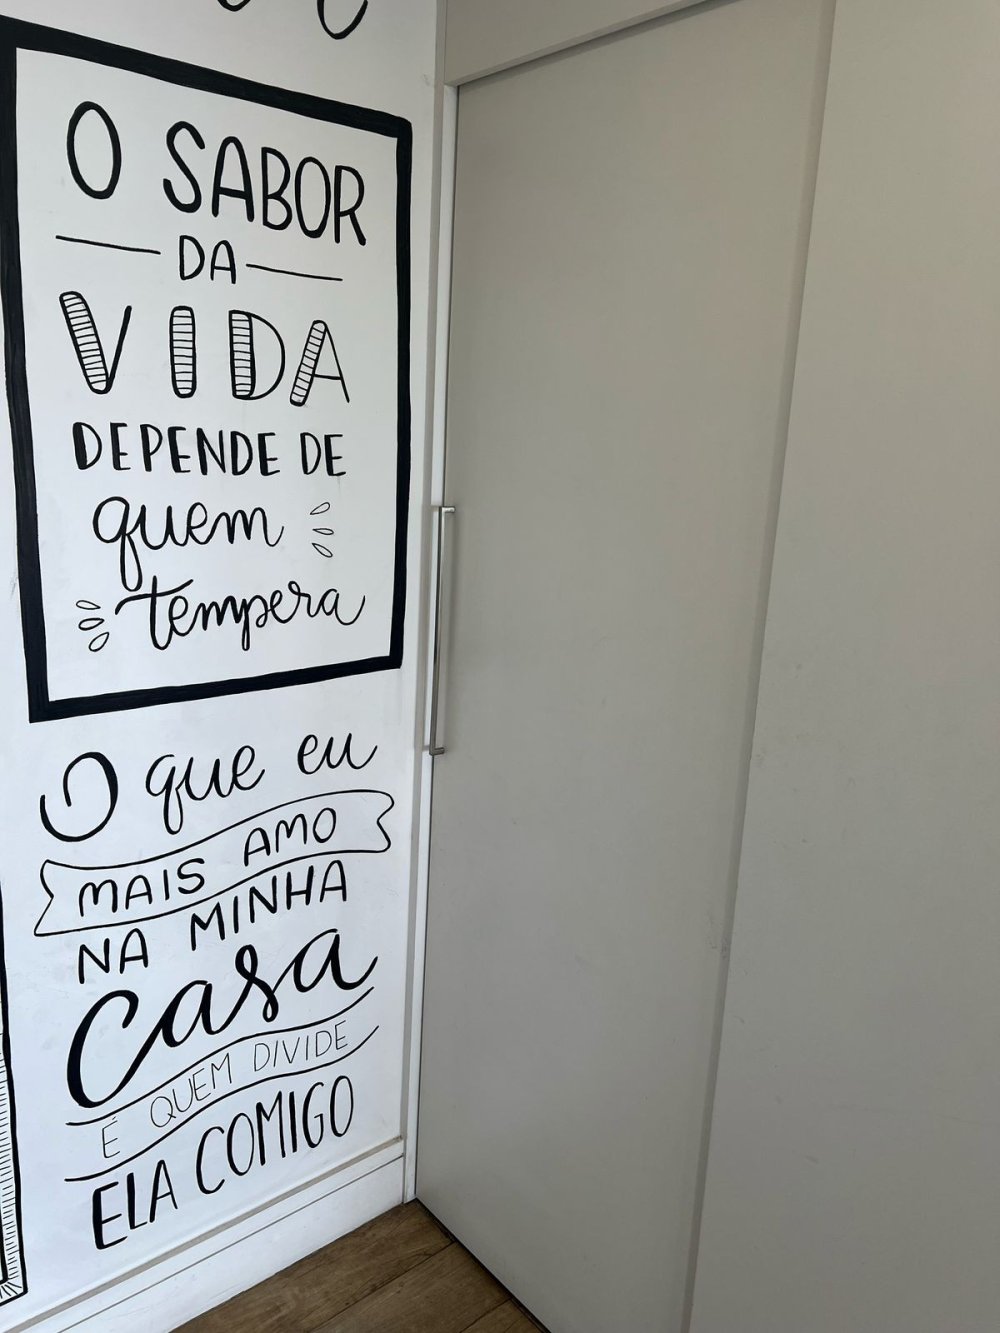 O SABOR
DA
VIDA
DEPENDE DE
quem
tempera
O que eu
MAIS AMO
NA MINHA
Casa
É QUEM DIVIDE
ELA COMIGO